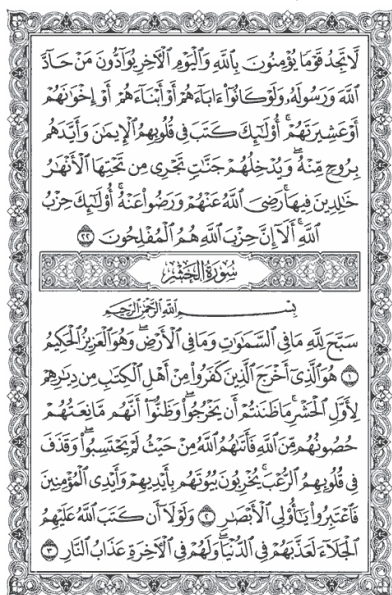 لَّا تَجِدُ قَوْمًا يُؤْمِنُونَ بِٱللَّهِ وَٱلْيَوْمِ ٱلْءَاخِرِ يُوَآدُّونَ مَنْ حَآدَّ
ٱللَّهَ وَرَسُولَهُۥ وَلَوْ كَانُوٓا۟ ءَابَآءَهُمْ أَوْ أَبْنَآءَهُمْ أَوْ إِخْوَٰنَهُمْ
أَوْ عَشِيرَتَهُمْ ۚ أُو۟لَٰٓئِكَ كَتَبَ فِى قُلُوبِهِمُ ٱلْإِيمَٰنَ وَأَيَّدَهُم
بِرُوحٍ مِّنْهُ ۖ وَيُدْخِلُهُمْ جَنَّٰتٍ تَجْرِى مِن تَحْتِهَا ٱلْأَنْهَٰرُ
خَٰلِدِينَ فِيهَا ۚ رَضِىَ ٱللَّهُ عَنْهُمْ وَرَضُوا۟ عَنْهُ ۚ أُو۟لَٰٓئِكَ حِزْبُ
ٱللَّهِ ۚ أَلَآ إِنَّ حِزْبَ ٱللَّهِ هُمُ ٱلْمُفْلِحُونَ ٢٢
سُورَةُ الحَشْرِ
بِسْمِ ٱللَّهِ ٱلرَّحْمَٰنِ ٱلرَّحِيمِ
سَبَّحَ لِلَّهِ مَا فِى ٱلسَّمَٰوَٰتِ وَمَا فِى ٱلْأَرْضِ ۖ وَهُوَ ٱلْعَزِيزُ ٱلْحَكِيمُ
١ هُوَ ٱلَّذِىٓ أَخْرَجَ ٱلَّذِينَ كَفَرُوا۟ مِنْ أَهْلِ ٱلْكِتَٰبِ مِن دِيَٰرِهِمْ
لِأَوَّلِ ٱلْحَشْرِ ۚ مَا ظَنَنتُمْ أَن يَخْرُجُوا۟ ۖ وَظَنُّوٓا۟ أَنَّهُم مَّانِعَتُهُمْ
حُصُونُهُم مِّنَ ٱللَّهِ فَأَتَىٰهُمُ ٱللَّهُ مِنْ حَيْثُ لَمْ يَحْتَسِبُوا۟ ۖ وَقَذَفَ
فِى قُلُوبِهِمُ ٱلرُّعْبَ ۚ يُخْرِبُونَ بُيُوتَهُم بِأَيْدِيهِمْ وَأَيْدِى ٱلْمُؤْمِنِينَ
فَٱعْتَبِرُوا۟ يَٰٓأُو۟لِى ٱلْأَبْصَٰرِ ٢ وَلَوْلَآ أَن كَتَبَ ٱللَّهُ عَلَيْهِمُ
ٱلْجَلَآءَ لَعَذَّبَهُمْ فِى ٱلدُّنْيَا ۖ وَلَهُمْ فِى ٱلْءَاخِرَةِ عَذَابُ ٱلنَّارِ ٣